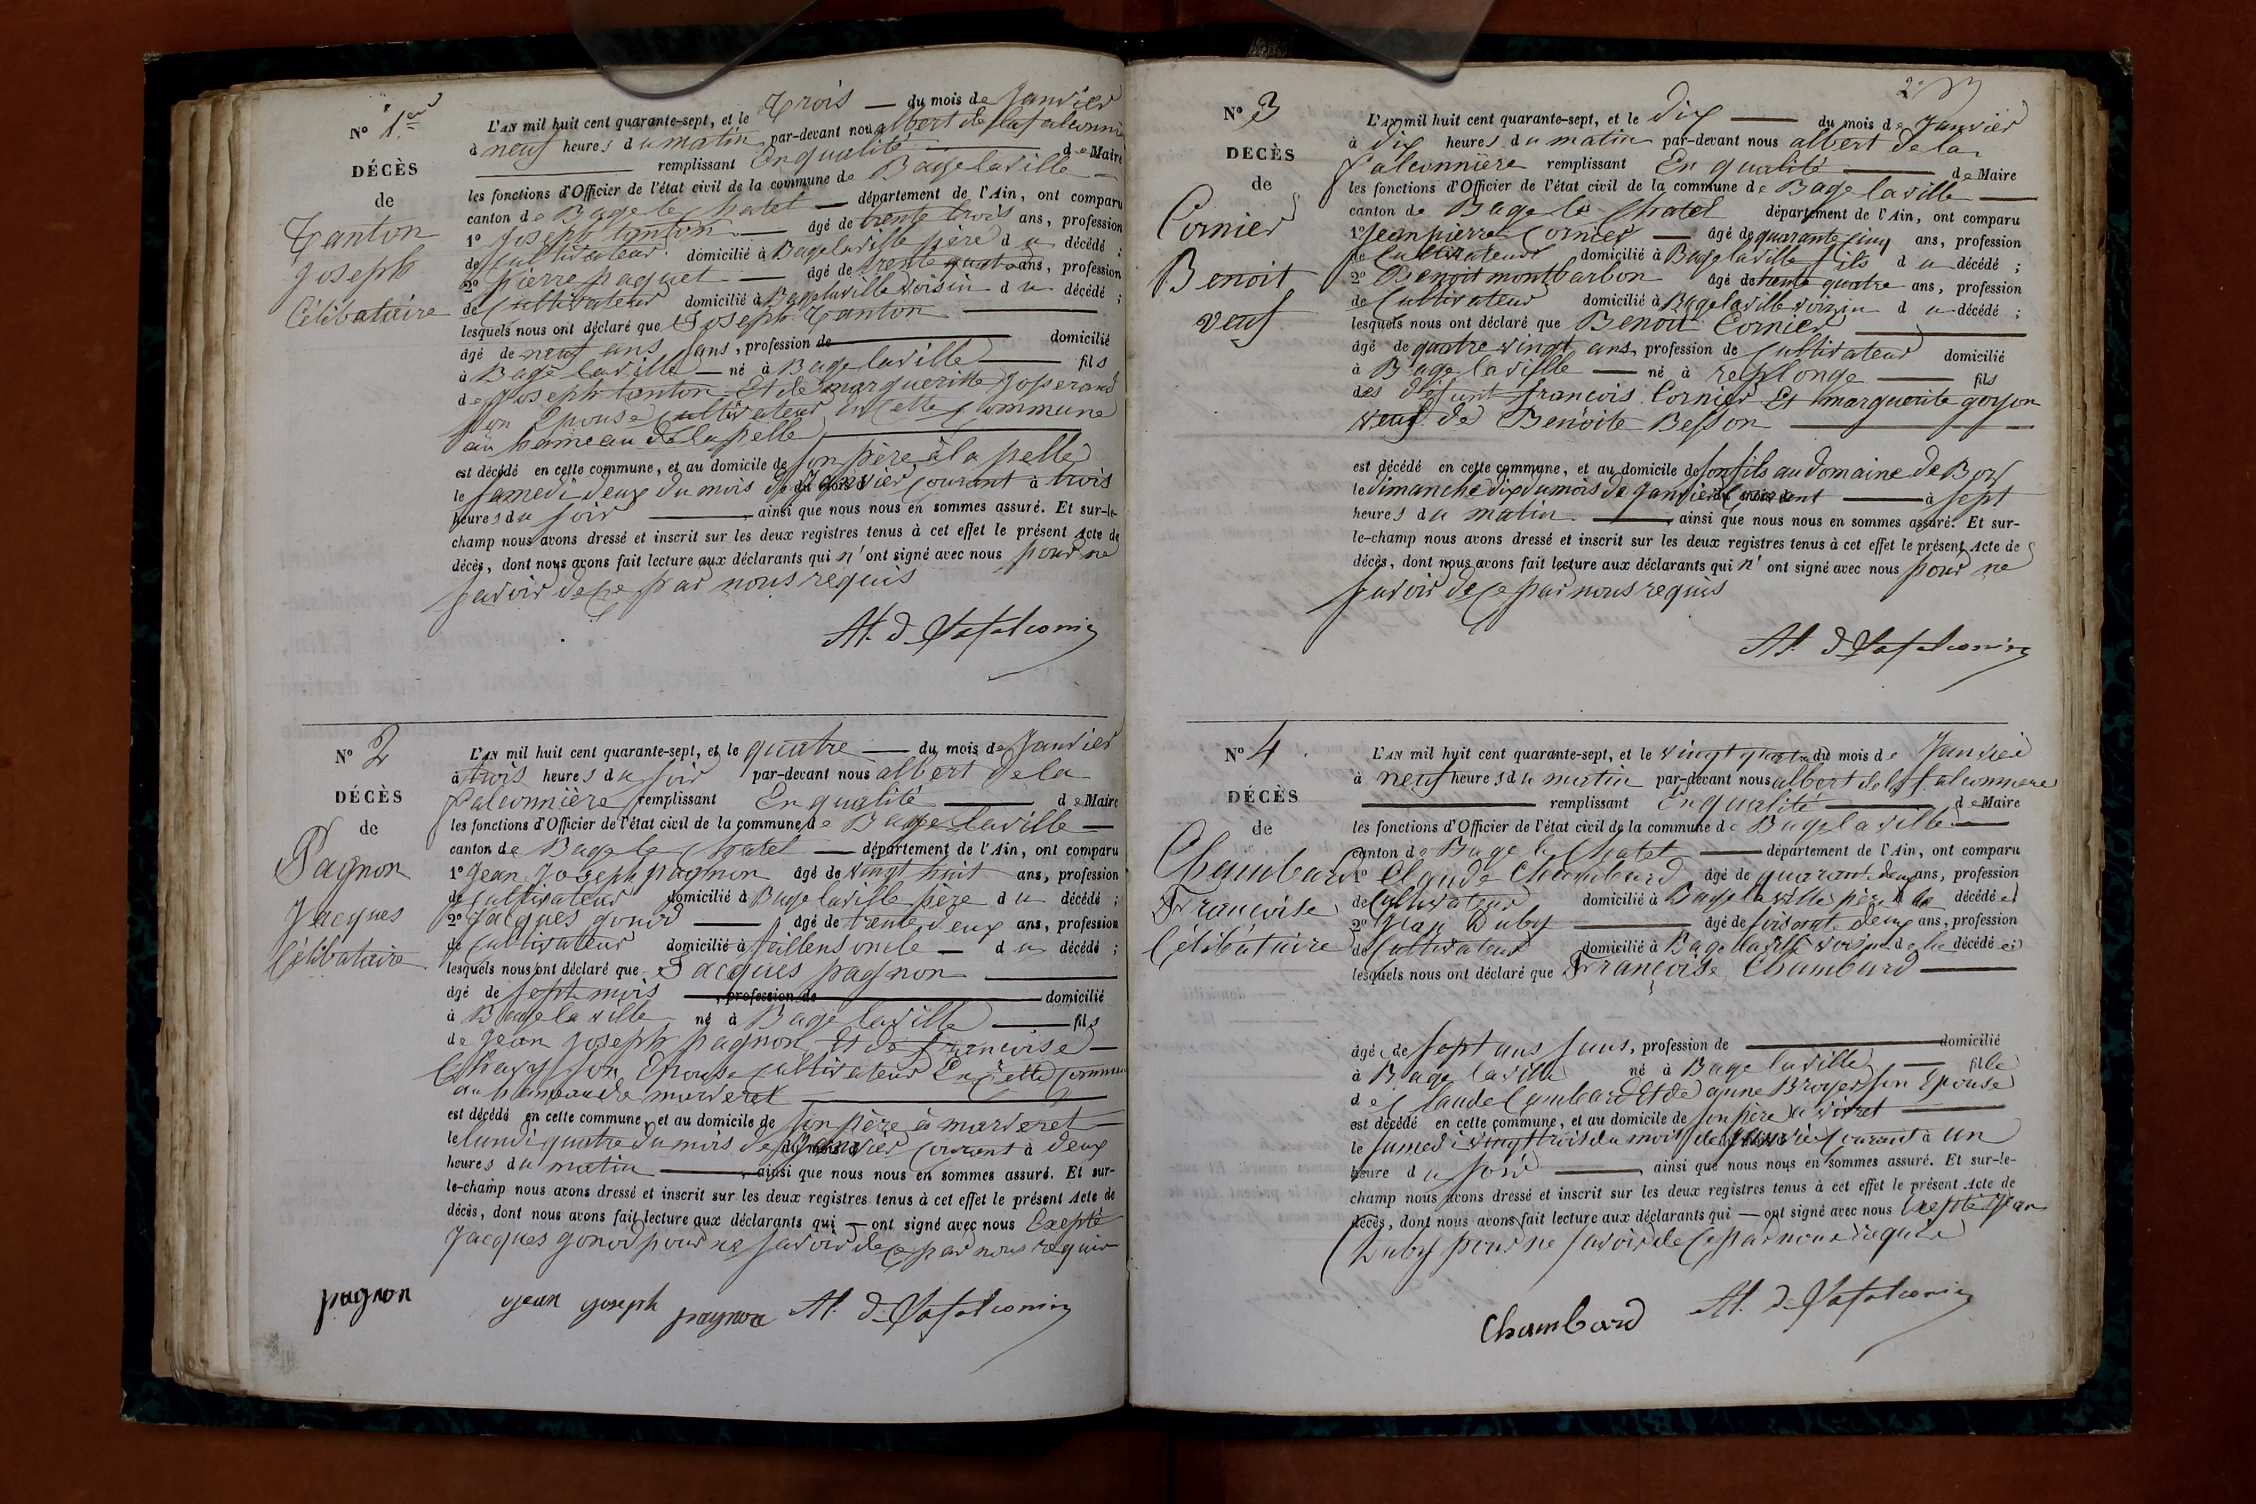 N° 1er
DÉCÈS
de
Tanton
Joseph
Célibataire
L'AN mil huit cent quarante-sept, et le Trois — du mois de Janvier
à neuf heures du matin par-devant nous albert de la falconnière
remplissant En qualité de Maire
les fonctions d'Officier de l'état civil de la commune de Bage la ville
canton de Bage le Chatel — département de l'Ain, ont comparu
1° Joseph tanton — âgé de trente trois ans, profession
de Cultivateur domicilié à Bage la ville père du décédé ;
2° pierre paquet — âgé de trente quatre ans, profession
de Cultivateur domicilié à Bage la ville voisin du décédé ;
lesquels nous ont déclaré que Joseph Tanton
âgé de neuf ans sans, profession de domicilié
à Bage la ville — né à Bage la ville fils
de Joseph tanton Et de margueritte Josserand
son Epouse Cultivateur En Cette Commune
au hameau de la pelle
est décédé en cette commune, et au domicile de son père à la pelle
le samedi deux du mois de Janvier Courant à trois
heures du soir ainsi que nous nous en sommes assuré. Et sur-le-
champ nous avons dressé et inscrit sur les deux registres tenus à cet effet le présent Acte de
décès, dont nous avons fait lecture aux déclarants qui n' ont signé avec nous pour ne
savoir de Ce par nous requis
At. d. Lafalconnière
N° 2
DÉCÈS
de
Pagnon
Jacques
Célibataire
L'AN mil huit cent quarante-sept, et le quatre — du mois de Janvier
à trois heures du soir par-devant nous albert de la
falconnière remplissant En qualité de Maire
les fonctions d'Officier de l'état civil de la commune de Bage la ville —
canton de Bage le Chatel — département de l'Ain, ont comparu
1° Jean Joseph pagnon âgé de vingt huit ans, profession
de Cultivateur domicilié à Bage la ville père du décédé ;
2° Jacques gonod — âgé de trente deux ans, profession
de Cultivateur domicilié à faillens oncle — du décédé ;
lesquels nous ont déclaré que Jacques pagnon
âgé de sept mois profession de domicilié
à Bage la ville né à Bage la ville fils
de Jean Joseph pagnon Et de françoise
Chavy son Epouse Cultivateur En Cette Commune
au hameau de marderet
est décédé en cette commune, et au domicile de son père à marderet
le lundi quatre du mois de Janvier Courant à deux
heures du matin ainsi que nous nous en sommes assuré. Et sur-
le-champ nous avons dressé et inscrit sur les deux registres tenus à cet effet le présent Acte de
décès, dont nous avons fait lecture aux déclarants qui — ont signé avec nous Excepté
Jacques gonod pour ne savoir de Ce par nous requis
pagnon jean joseph pagnon At. d. Lafalconnière
N° 3
DÉCÈS
de
Cornier
Benoit
veuf
L'AN mil huit cent quarante-sept, et le dix — du mois de Janvier
à dix heures du matin par-devant nous albert de la
falconnière remplissant En qualité de Maire
les fonctions d'Officier de l'état civil de la commune de Bage la ville
canton de Bage le Chatel département de l'Ain, ont comparu
1° Jean pierre Cornier — âgé de quarante cinq ans, profession
de Cultivateur domicilié à Bage la ville fils du décédé ;
2° Benoit montbarbon âgé de trente quatre ans, profession
de Cultivateur domicilié à Bage la ville voisin du décédé ;
lesquels nous ont déclaré que Benoit Cornier
âgé de quatre vingt ans, profession de Cultivateur domicilié
à Bage la ville — né à replonge fils
des défunt françois Cornier Et marguerite goyon
veuf de Benoite Besson
est décédé en cette commune, et au domicile de son fils au domaine de
le dimanche dix du mois de Janvier Courant à sept
heures du matin ainsi que nous nous en sommes assuré. Et sur-
le-champ nous avons dressé et inscrit sur les deux registres tenus à cet effet le présent Acte de
décès, dont nous avons fait lecture aux déclarants qui n' ont signé avec nous pour ne
savoir de Ce par nous requis
At. d. Lafalconnière
N° 4
DÉCÈS
de
Chambard
Françoise
Célibataire
L'AN mil huit cent quarante-sept, et le vingt quatre du mois de Janvier
à neuf heures du matin par-devant nous albert de la falconnière
remplissant En qualité de Maire
les fonctions d'Officier de l'état civil de la commune de Bage la ville
canton de Bage le Chatel département de l'Ain, ont comparu
1° Claude Chambard âgé de quarante deux ans, profession
de Cultivateur domicilié à Bage la ville père de la décédée
2° Jean Duby âgé de soixante deux ans, profession
de Cultivateur domicilié à Bage la ville voisin de la décédée ;
lesquels nous ont déclaré que Françoise Chambard
âgé de sept ans sans, profession de domicilié
à Bage la ville né à Bage la ville fille
de Claude Cambard Et de anne Broyer son Epouse
est décédé en cette commune, et au domicile de son père
le samedi vingt trois du mois de Janvier Courant à un
heure du soir ainsi que nous nous en sommes assuré. Et sur-le-
champ nous avons dressé et inscrit sur les deux registres tenus à cet effet le présent Acte de
décès, dont nous avons fait lecture aux déclarants qui — ont signé avec nous Excepté Jean
Duby pour ne savoir de Ce par nous requis
Chambard At. d. Lafalconnière